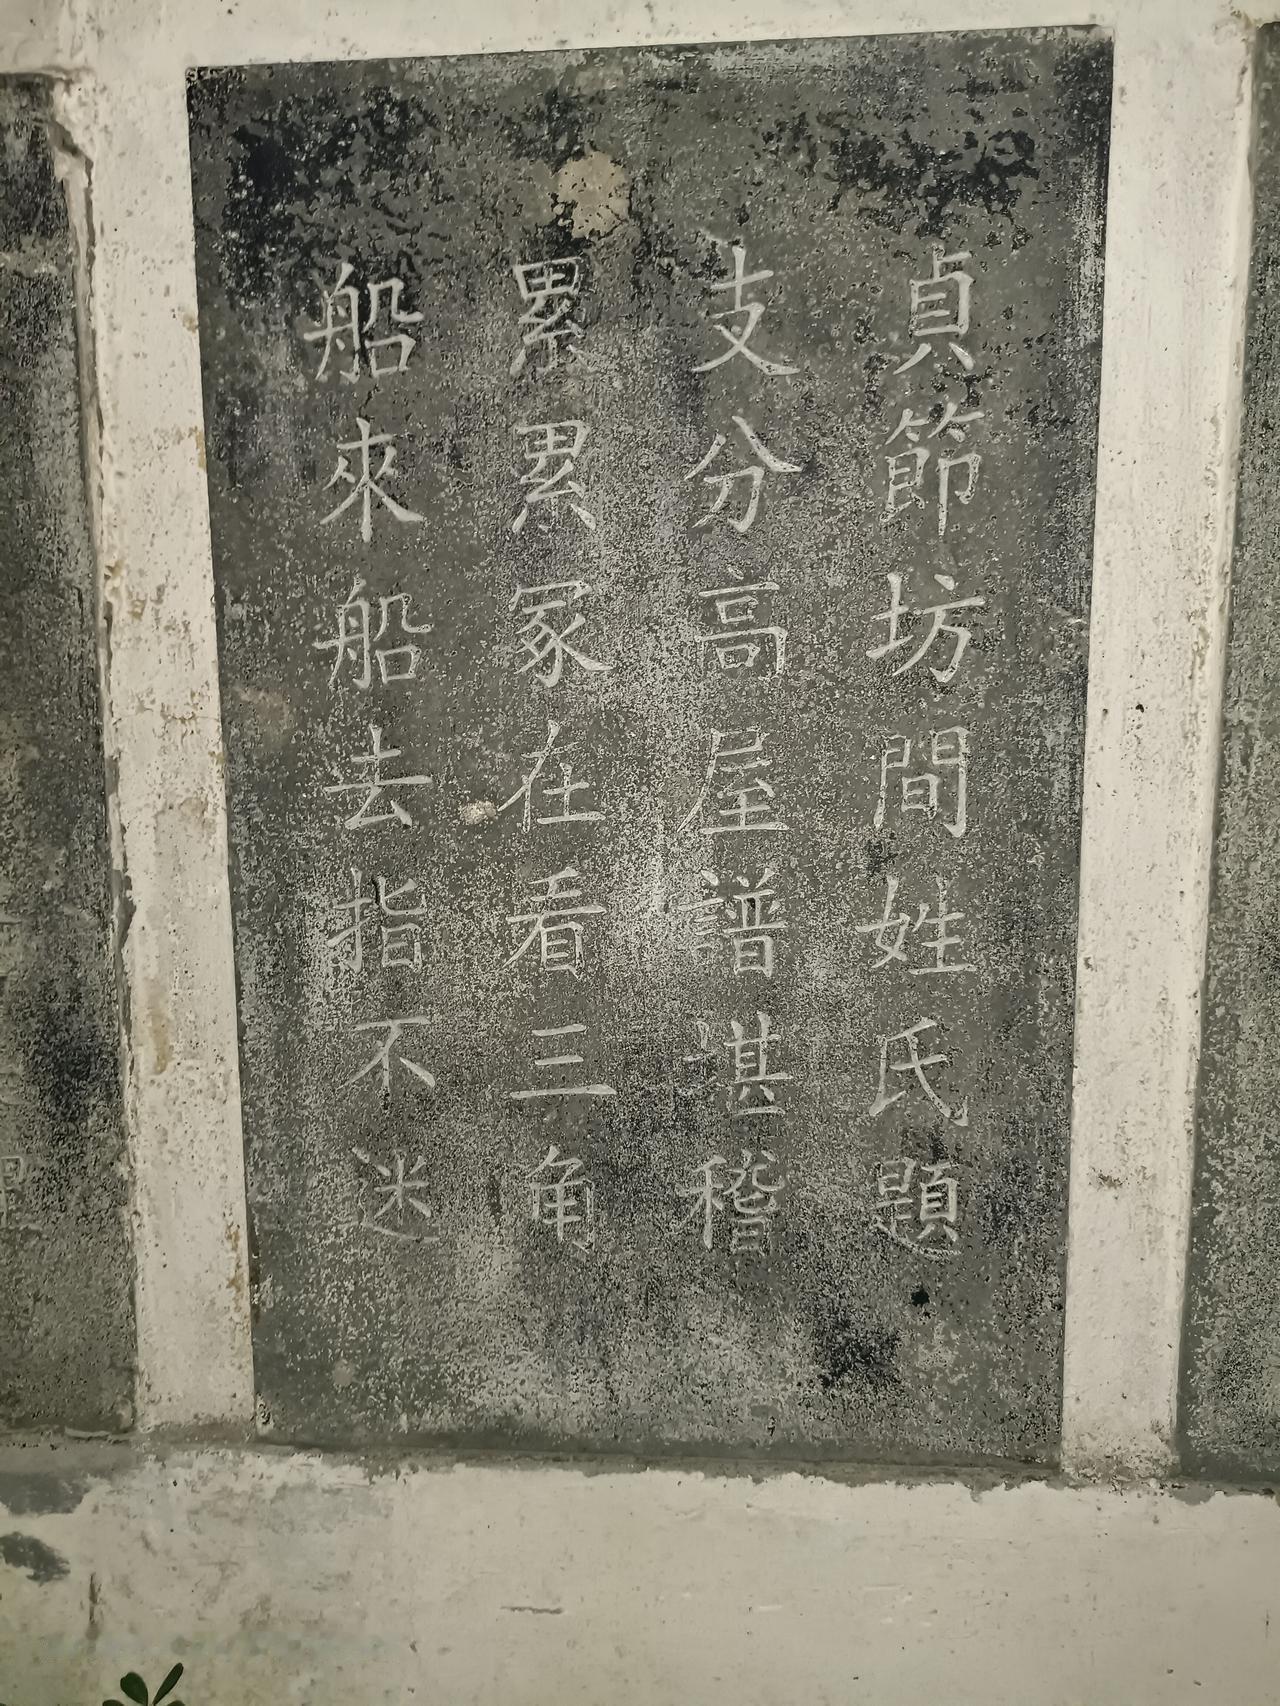 貞節坊間姓氏題
支分高屋譜堪稽
累累冢在看三角
船來船去指不迷